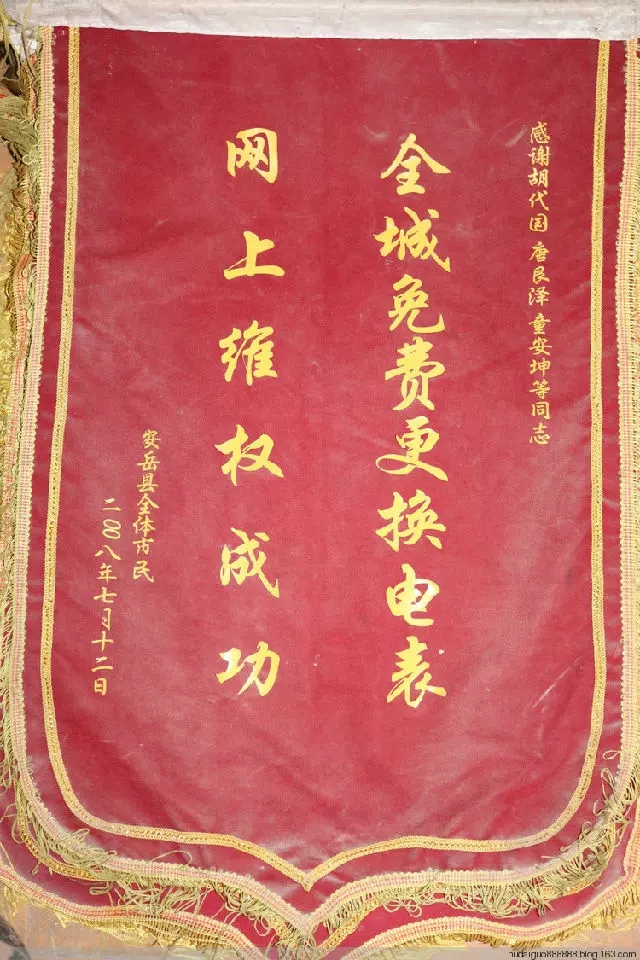 感谢胡代国 唐良泽 童安坤等同志
全城免费更换电表
网上维权成功
安岳县全体市民
二〇〇八年七月十二日
hudaiguo888888.blog.163.com